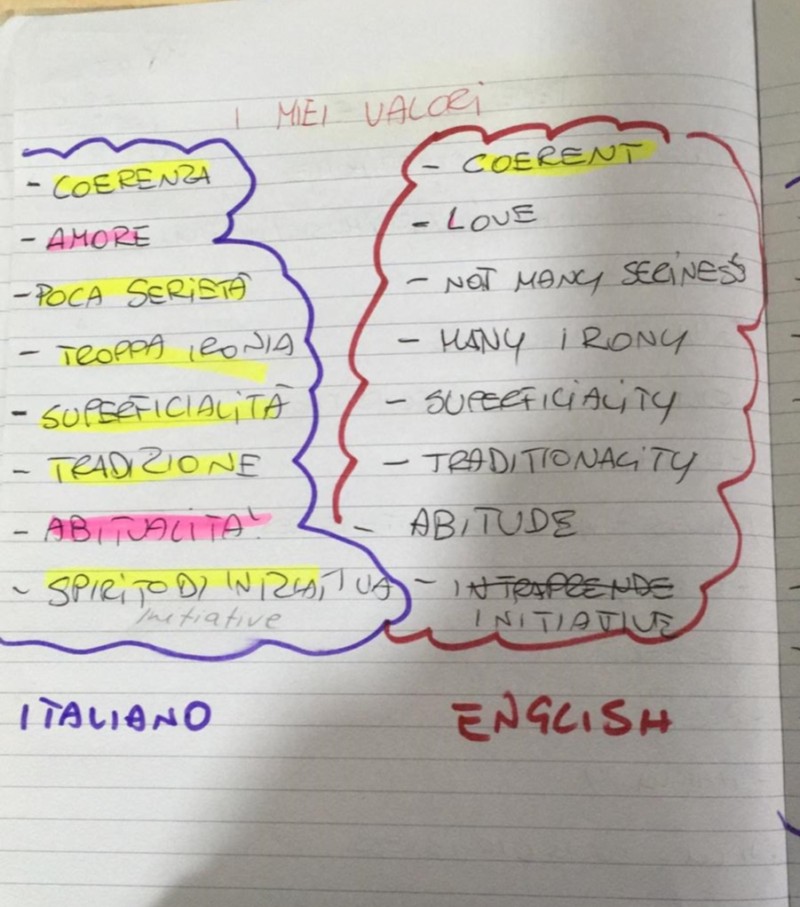 I MIEI VALORI
- COERENZA
- AMORE
- POCA SERIETÀ
- TROPPA IRONIA
- SUPERFICIALITÀ
- TRADIZIONE
- ABITUALITA'
- SPIRITO DI INIZIATIVA
initiative
ITALIANO
- COERENT
- LOVE
- NOT MANY SERINESS
- MANY IRONY
- SUPERFICIALITY
- TRADITIONALITY
- ABITUDE
- INTRAPRENDE
INITIATIVE
ENGLISH